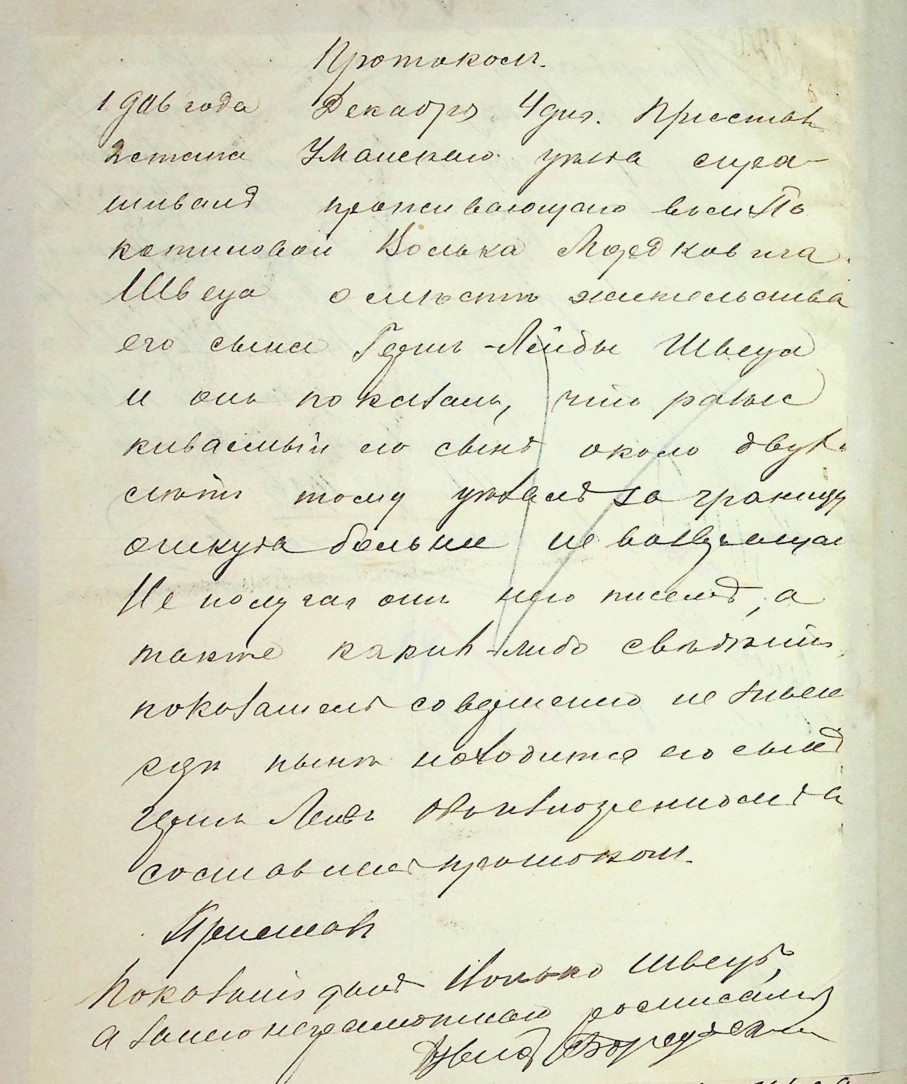 Протоколъ.
1906 года Декабря 4 дня. Приставъ
2 стана Уманскаго уѣзда спра-
шивалъ проживающаго въ м. По
котиловой Волька Мордковича
Швеца о мѣстѣ жительства
его сына Гершъ-Лейбы Швеца
и онъ показалъ, что разыс
киваемый его сынъ около двухъ
лѣтъ тому уѣхалъ за границу
откуда больше не возвращал
Не получая отъ него писемъ, а
также какихъ-либо свѣдѣній,
показатель совершенно не знаетъ
гдѣ нынѣ находится его сынъ
Гершъ Лейба О вышеизложенномъ
составилъ протоколъ.
Приставъ
Показаніе далъ Волько Швецъ,
а за него неграмотнаго росписался